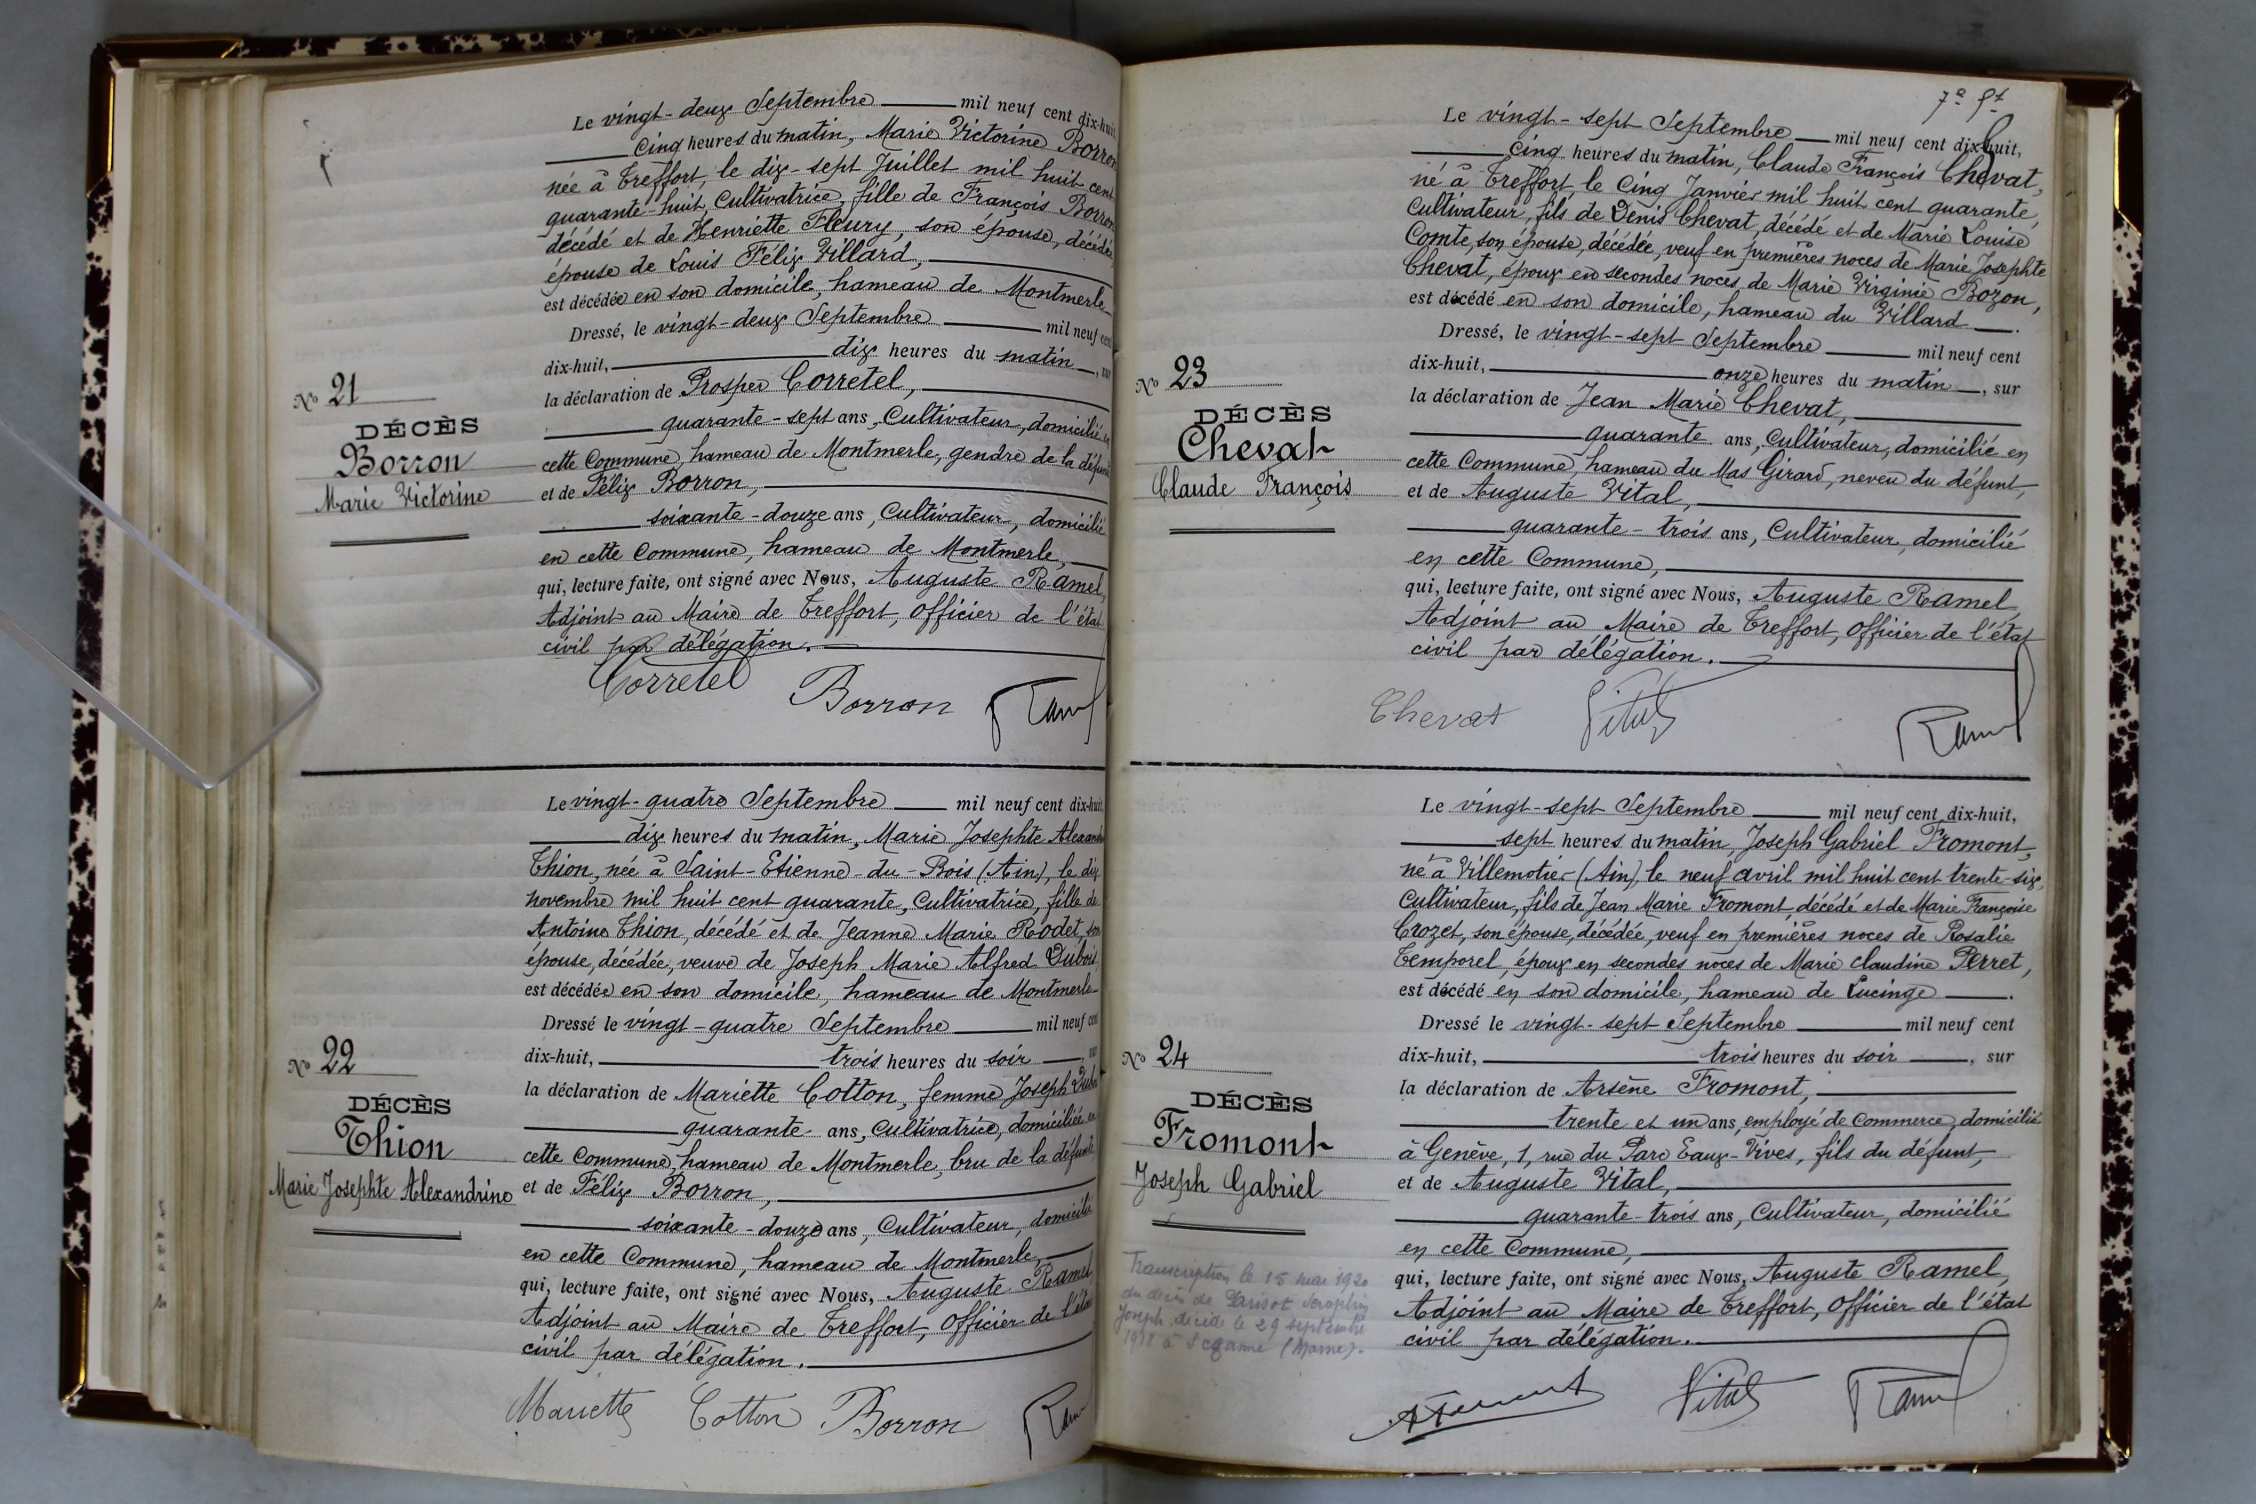 Le vingt-deux Septembre mil neuf cent dix-huit
cinq heures du matin, Marie Victorine Borron
née à Treffort, le dix-sept Juillet mil huit cent
quarante-huit, Cultivatrice, fille de François Borron
décédé et de Henriette Fleury, son épouse, décédée,
épouse de Louis Félix Villard,
est décédée en son domicile, hameau de Montmerle
Dressé, le vingt-deux Septembre mil neuf cent
dix-huit, dix heures du matin, sur
la déclaration de Prosper Corretel,
quarante-sept ans, Cultivateur, domicilié en
cette Commune, hameau de Montmerle, gendre de la défunte
et de Félix Borron,
soixante-douze ans, Cultivateur, domicilié
en cette Commune, hameau de Montmerle,
qui, lecture faite, ont signé avec Nous, Auguste Ramel,
Adjoint au Maire de Treffort, Officier de l'état
civil par délégation.
Corretel Borron Ramel
No 21
DÉCÈS
Borron
Marie Victorine
Le vingt-quatre Septembre mil neuf cent dix-huit
dix heures du matin, Marie Josephte Alexandrine
Thion, née à Saint-Etienne-du-Bois (Ain), le dix
novembre mil huit cent quarante, Cultivatrice, fille de
Antoine Thion, décédé et de Jeanne Marie Rodet, son
épouse, décédée, veuve de Joseph Marie Alfred Dubois,
est décédée en son domicile, hameau de Montmerle
Dressé le vingt-quatre Septembre mil neuf cent
dix-huit, trois heures du soir, sur
la déclaration de Mariette Cotton, femme Joseph Dubois
quarante ans, Cultivatrice, domiciliée en
cette Commune, hameau de Montmerle, bru de la défunte
et de Félix Borron,
soixante-douze ans, Cultivateur, domicilié
en cette Commune, hameau de Montmerle,
qui, lecture faite, ont signé avec Nous, Auguste Ramel
Adjoint au Maire de Treffort, Officier de l'état
civil par délégation.
Mariette Cotton Borron Ramel
No 22
DÉCÈS
Thion
Marie Josephte Alexandrine
Le vingt-sept Septembre mil neuf cent dix-huit,
cinq heures du matin, Claude François Chevat,
né à Treffort, le Cinq Janvier mil huit cent quarante,
Cultivateur, fils de Denis Chevat, décédé et de Marie Louise
Comte, son épouse, décédée, veuf en premières noces de Marie Josephte
Chevat, époux en secondes noces de Marie Virginie Bozon,
est décédé en son domicile, hameau du Villard.
Dressé, le vingt-sept Septembre mil neuf cent
dix-huit, onze heures du matin, sur
la déclaration de Jean Marie Chevat,
quarante ans, Cultivateur, domicilié en
cette Commune, hameau du Mas Girard, neveu du défunt,
et de Auguste Vital,
quarante-trois ans, Cultivateur, domicilié
en cette Commune,
qui, lecture faite, ont signé avec Nous, Auguste Ramel,
Adjoint au Maire de Treffort, Officier de l'état
civil par délégation.
Chevat Vital Ramel
No 23
DÉCÈS
Chevat
Claude François
Le vingt-sept Septembre mil neuf cent dix-huit,
sept heures du matin, Joseph Gabriel Fromont,
né à Villemotier (Ain), le neuf avril mil huit cent trente-six,
Cultivateur, fils de Jean Marie Fromont, décédé et de Marie Françoise
Crozet, son épouse, décédée, veuf en premières noces de Rosalie
Temporel, époux en secondes noces de Marie Claudine Perret,
est décédé en son domicile, hameau de Lucinge.
Dressé le vingt-sept Septembre mil neuf cent
dix-huit, trois heures du soir, sur
la déclaration de Arsène Fromont,
trente et un ans, employé de Commerce, domicilié
à Genève, 1, rue du Parc Eaux-Vives, fils du défunt,
et de Auguste Vital,
quarante-trois ans, Cultivateur, domicilié
en cette Commune,
qui, lecture faite, ont signé avec Nous, Auguste Ramel,
Adjoint au Maire de Treffort, Officier de l'état
civil par délégation.
A Fromont Vital Ramel
No 24
DÉCÈS
Fromont
Joseph Gabriel
Transcription le 15 mai 1920
du décès de Parisot Séraphin
Joseph décédé le 29 septembre
1918 à (Marne).